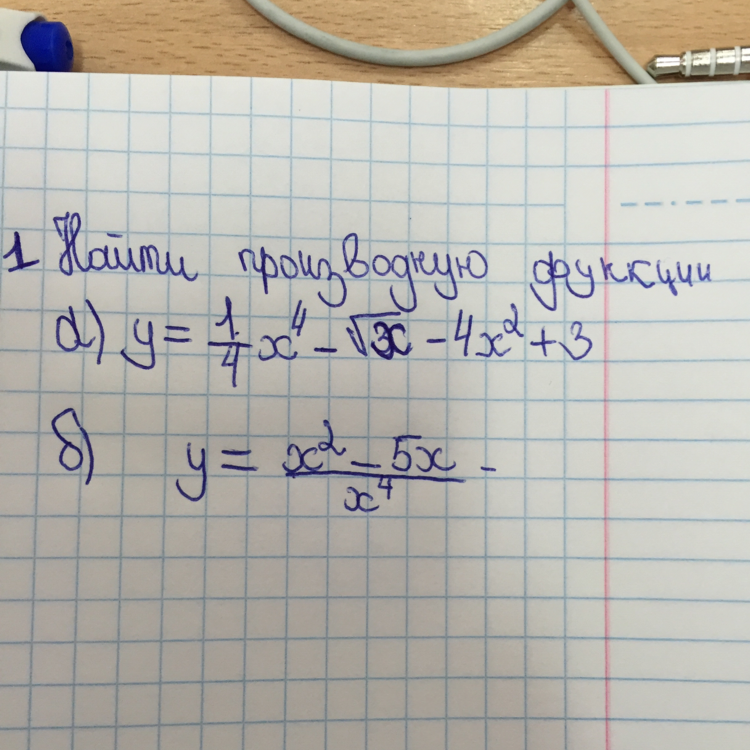 1 Найти производную функции
а) y = 1/4 x⁴ - √x - 4x² + 3
б) y = (x² - 5x)/x⁴ -